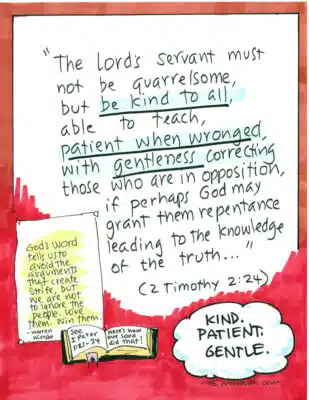 "The Lord's servant must
not be quarrelsome,
but be kind to all,
able to teach,
patient when wronged,
with gentleness correcting
those who are in opposition,
if perhaps God may
grant them repentance
leading to the knowledge
of the truth..."
(2 Timothy 2:24)
God's word
tells us to
avoid the
arguments
that create
strife, but
we are not
to ignore the
people. Love
them. Win them.
- Warren
See
I Peter
2:21-24
Here's how
our Lord
did that!
KIND.
PATIENT.
GENTLE.